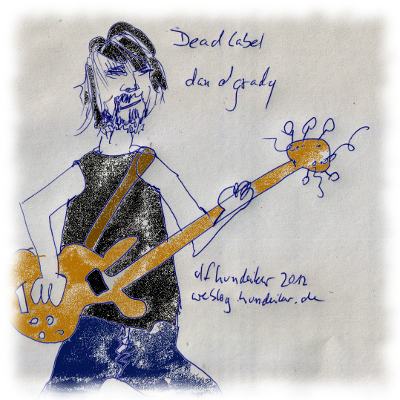 Dead Label
dan o'grady
df hunderker 2012
weblog hunderker.de